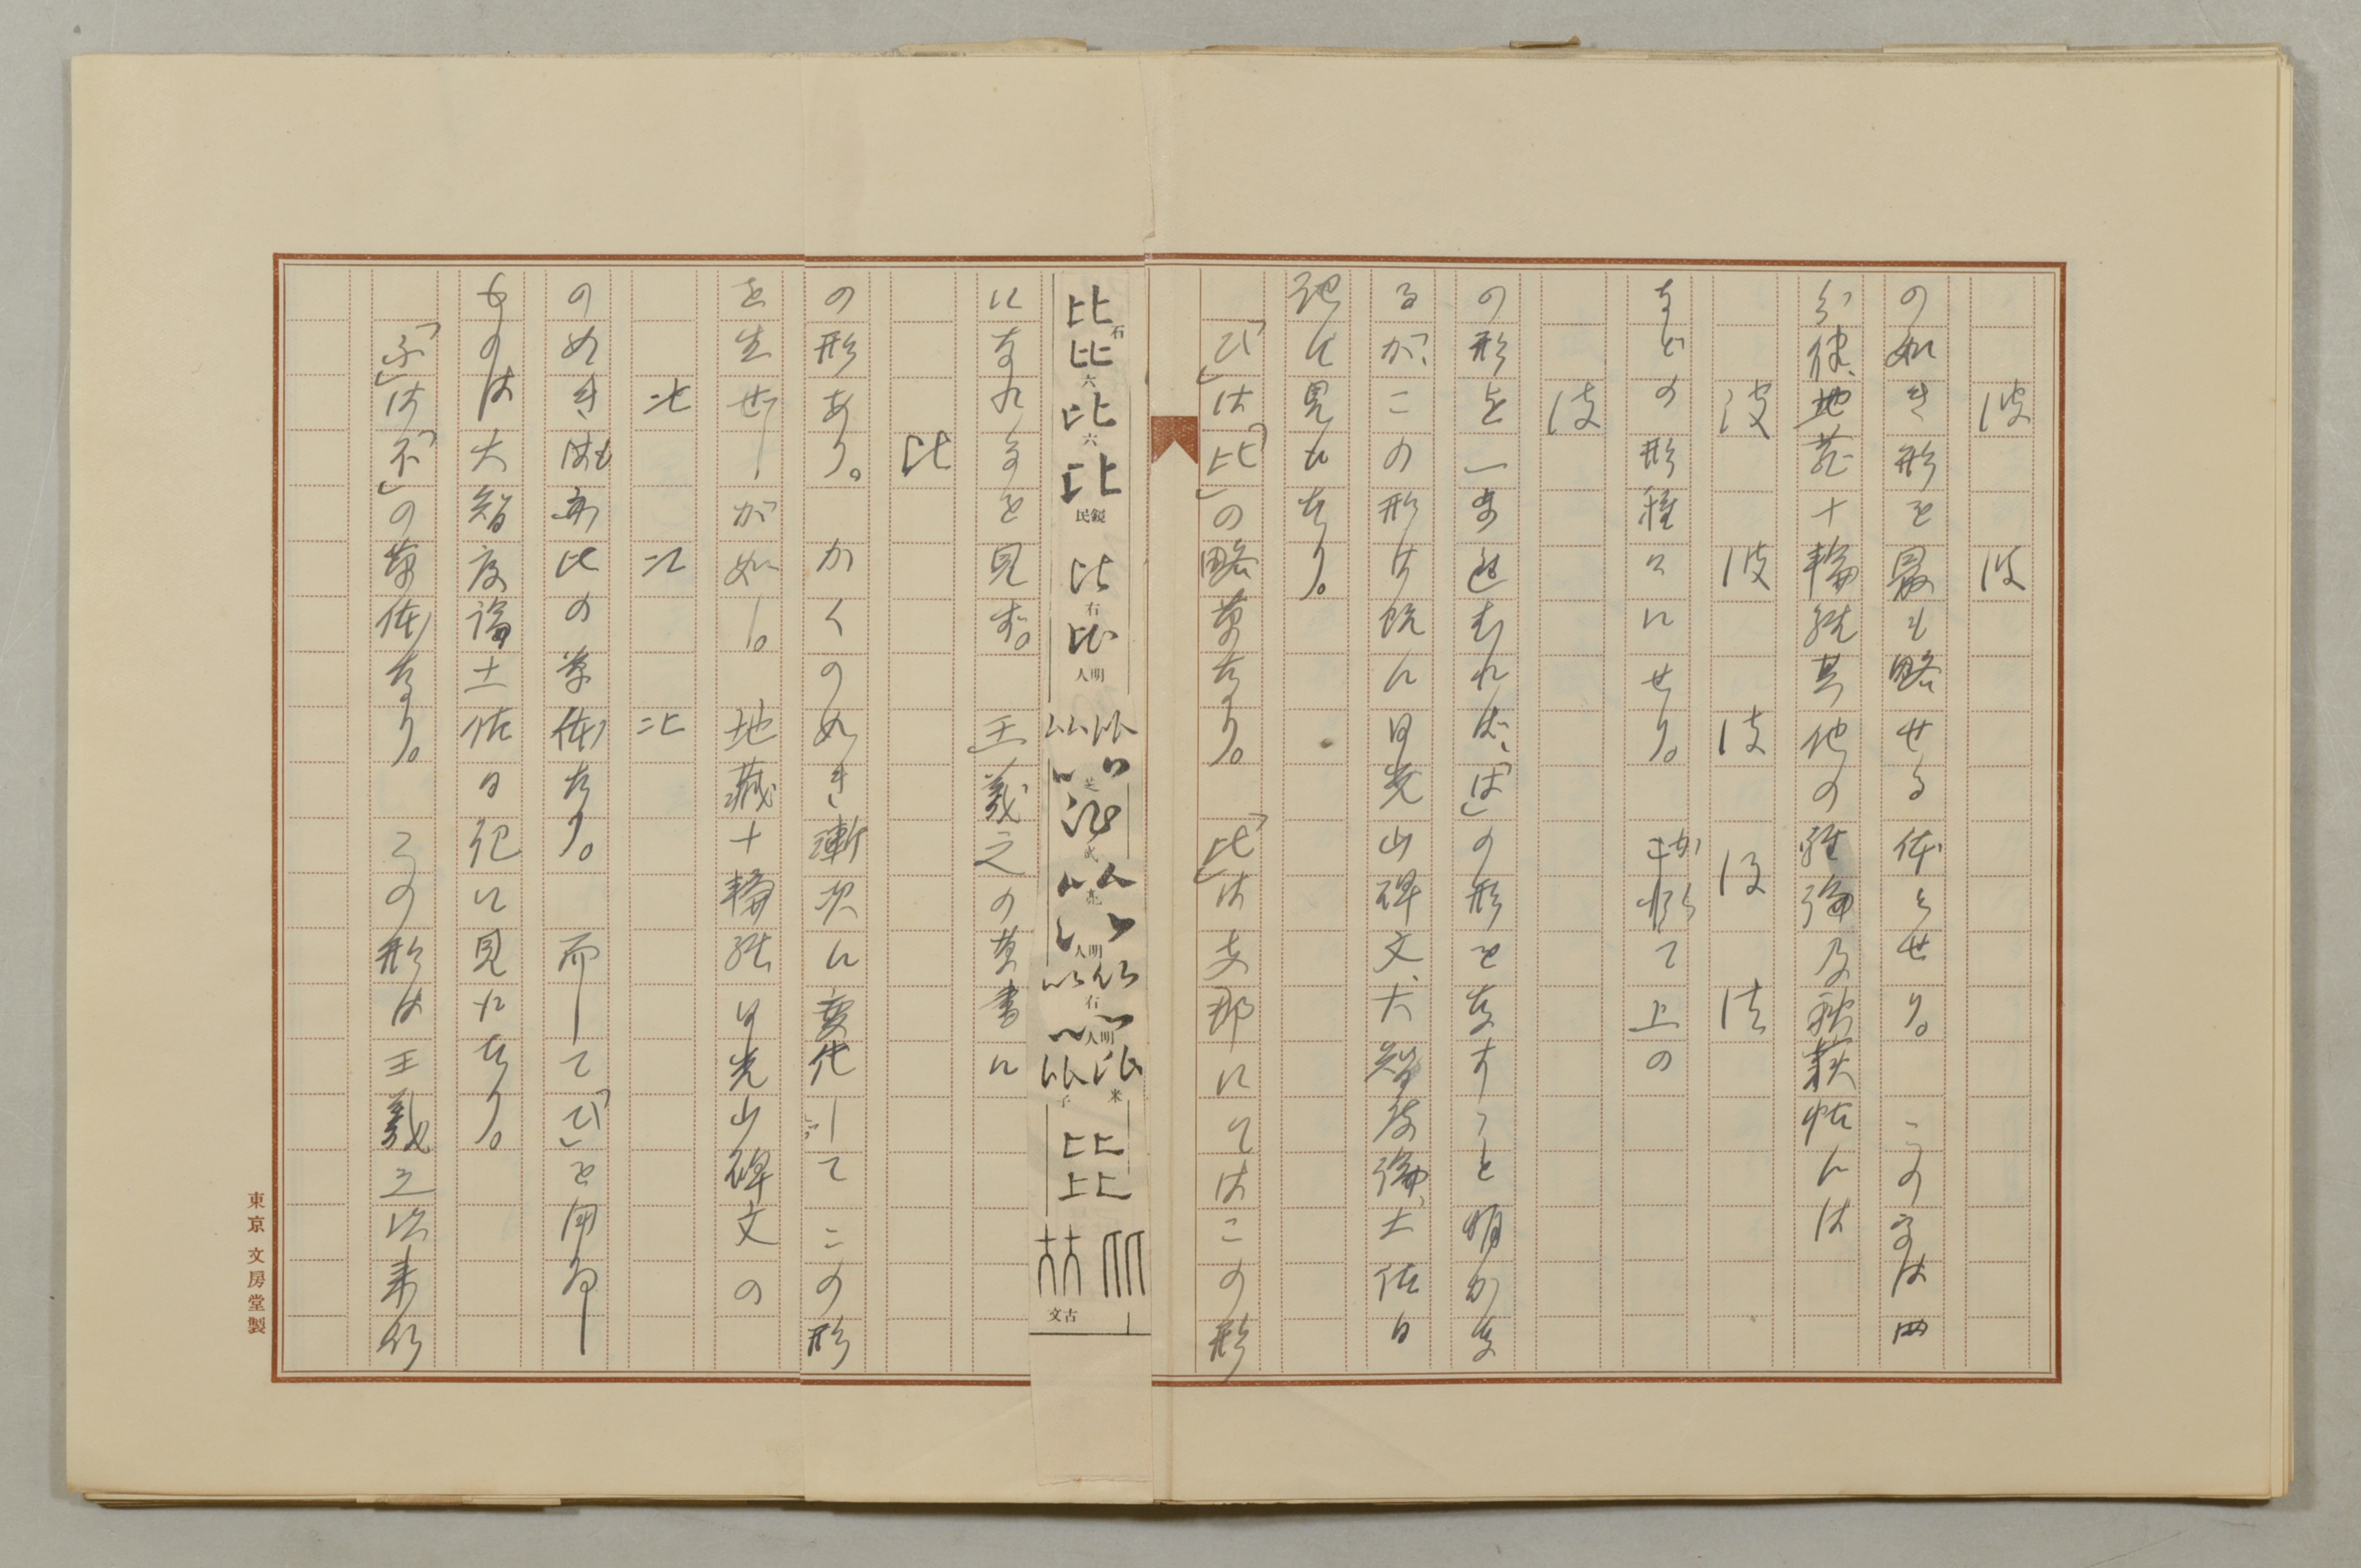 波　波
の如き形を最も略せる体とせり。この字は四
分律、地蔵十輪経其他の経論及秋萩帖には
波　波　波　波　波
などの形種々にせり。かくて上の
波
の形を一ま進むれば、「は」の形を
るが、この形は既に日光山碑文、大智度論、土佐日
記に見えたり。
「ひ」は「比」の略草なり。「比」は支那にてはこの形
比　石　六　六　民鏡　右　人明　人明　石　人明　米　子　文古
になれるを見ず。　王羲之の草書に
比
の形あり。かくの如き漸次に変化して　この形
を生ぜしが如し。　地蔵十輪経　日光山碑文の
比　比　比
の如きはも亦比の草体なり。而して「ひ」を用ゐし
ものは大智度論土佐日記に見えたり。
「ふ」は「不」の草体なり。　この形は王羲之以来行
東京　文房堂製